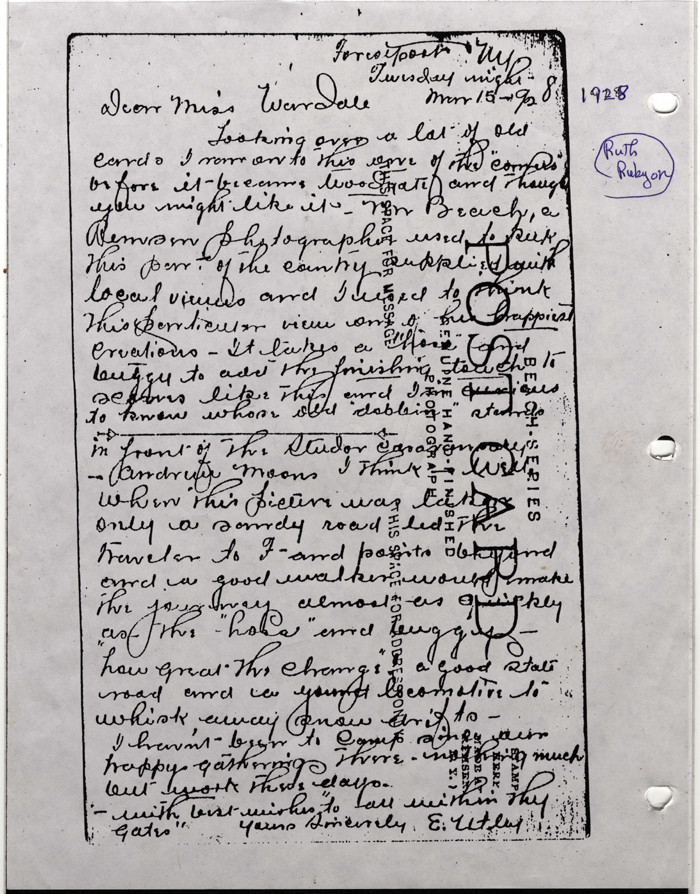 Forestport NY
Tuesday night-
Mar 15-1928
1928
Dear Miss Wardale
Ruth
Rubyor
Looking over a lot of old
cards I ran on to this one of the "corners"
before it became and thought
you might like it - Mr Beach, a
Remsen photographer used to keep
this part of the country supplied with
local views and I used to think
this particular view one of his happiest
creations - It takes a "hoss" and
buggy to add the finishing touch to
scenes like this and I'm curious
to know whose old dobbin stands
in front of the Studor
- Andrew Moons I think - Well
When this picture was taken
only a sandy road led the
traveler to F- and points beyond
and a good walker would make
the journey almost as quickly
as the "hoss" and buggy -
"how great the change", a good state
road and a locomotive to
whisk away snow drifts -
I havn't been to Camp since our
happy gathering there - much
but work these days.
- with best wishes "to all within thy
gates" Yours Sincerely E. Utley
POSTCARD
BEACH SERIES
"HAND-FINISHED
PHOTOGRAPH
THIS SPACE FOR MESSAGE
THIS SPACE FOR ADDRESS ONLY
STAMP
HERE
MADE
REMSEN
N.Y.